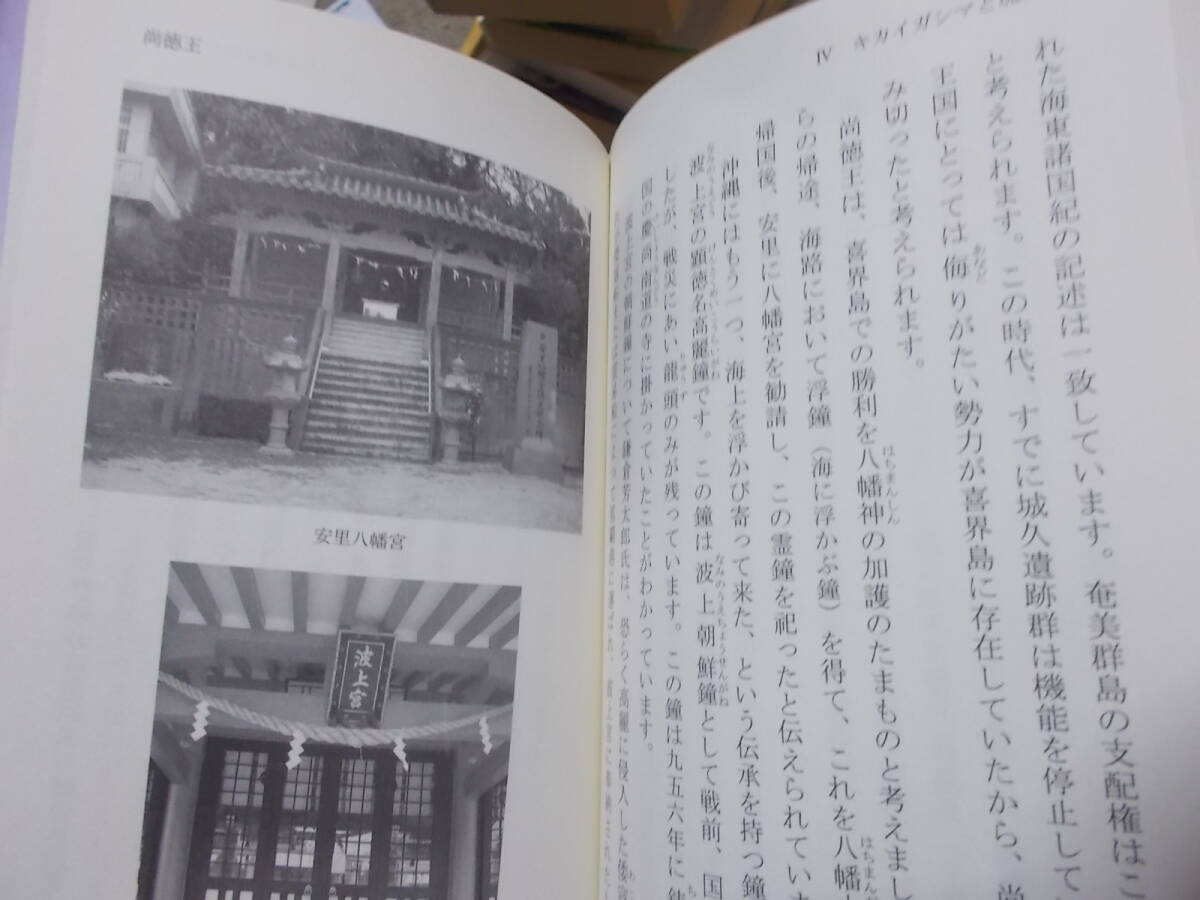 尚徳王
安里八幡宮
波上宮
Ⅳ キカイガシマと
れた海東諸国紀の記述は一致しています。奄美群島の支配権はこ
と考えられます。この時代、すでに城久遺跡群は機能を停止して
王国にとっては侮りがたい勢力が喜界島に存在していたから、尚
み切ったと考えられます。
尚徳王は、喜界島での勝利を八幡神の加護のたまものと考えまし
らの帰途、海路において浮鐘（海に浮かぶ鐘）を得て、これを八幡
帰国後、安里に八幡宮を勧請し、この霊鐘を祀ったと伝えられていま
沖縄にはもう一つ、海上を浮かび寄って来た、という伝承を持つ鐘
波上宮の顕徳名高麗鐘です。この鐘は波上朝鮮鐘として戦前、国
したが、戦災にあい龍頭のみが残っています。この鐘は九五六年に
国の慶尚南道の寺に掛かっていたことがわかっています。
波上宮の朝鮮鐘について鎌倉芳太郎氏は、恐らく高麗に侵入した倭寇